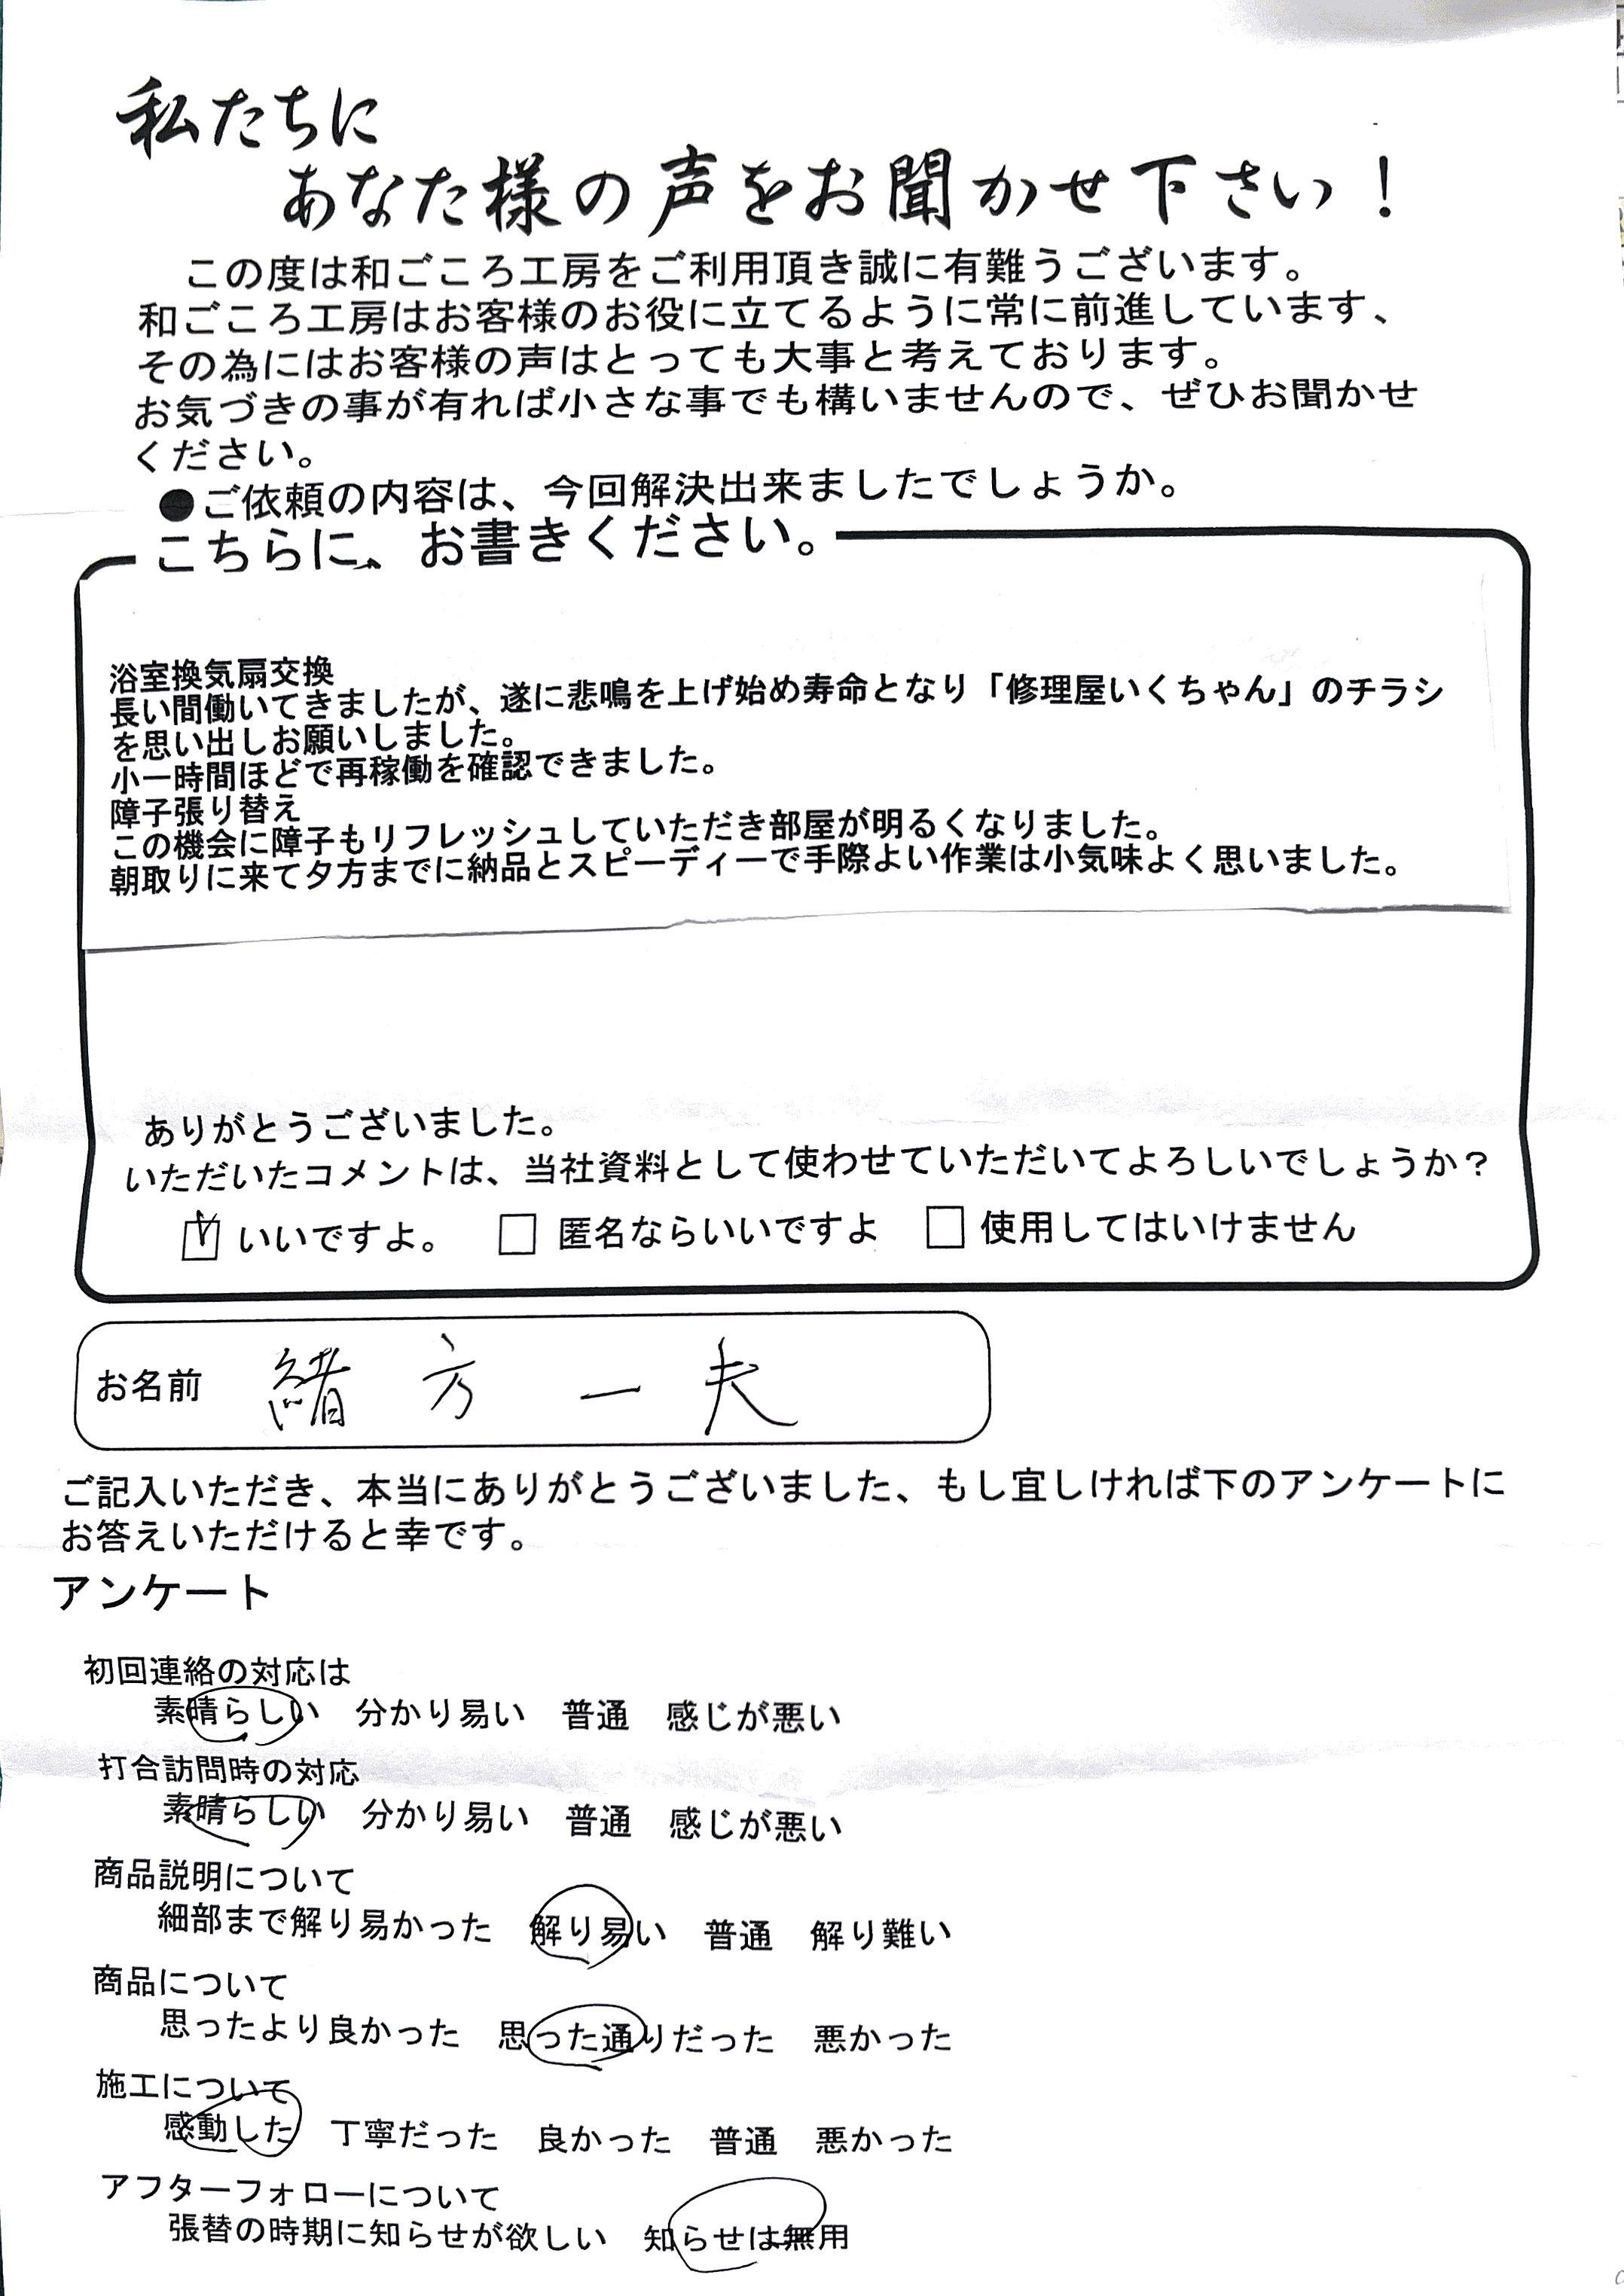 私たちに
あなた様の声をお聞かせ下さい!
この度は和ごころ工房をご利用頂き誠に有難うございます。
和ごころ工房はお客様のお役に立てるように常に前進しています、
その為にはお客様の声はとっても大事と考えております。
お気づきの事が有れば小さな事でも構いませんので、ぜひお聞かせ
ください。
●ご依頼の内容は、今回解決出来ましたでしょうか。
こちらに、お書きください。
浴室換気扇交換
長い間働いてきましたが、遂に悲鳴を上げ始め寿命となり「修理屋いくちゃん」のチラシ
を思い出しお願いしました。
小一時間ほどで再稼働を確認できました。
障子張り替え
この機会に障子もリフレッシュしていただき部屋が明るくなりました。
朝取りに来て夕方までに納品とスピーディーで手際よい作業は小気味よく思いました。
ありがとうございました。
いただいたコメントは、当社資料として使わせていただいてよろしいでしょうか?
☑ いいですよ。 □ 匿名ならいいですよ □ 使用してはいけません
お名前 緒方一夫
ご記入いただき、本当にありがとうございました、もし宜しければ下のアンケートに
お答えいただけると幸です。
アンケート
初回連絡の対応は
素晴らしい 分かり易い 普通 感じが悪い
打合訪問時の対応
素晴らしい 分かり易い 普通 感じが悪い
商品説明について
細部まで解り易かった 解り易い 普通 解り難い
商品について
思ったより良かった 思った通りだった 悪かった
施工について
感動した 丁寧だった 良かった 普通 悪かった
アフターフォローについて
張替の時期に知らせが欲しい 知らせは無用